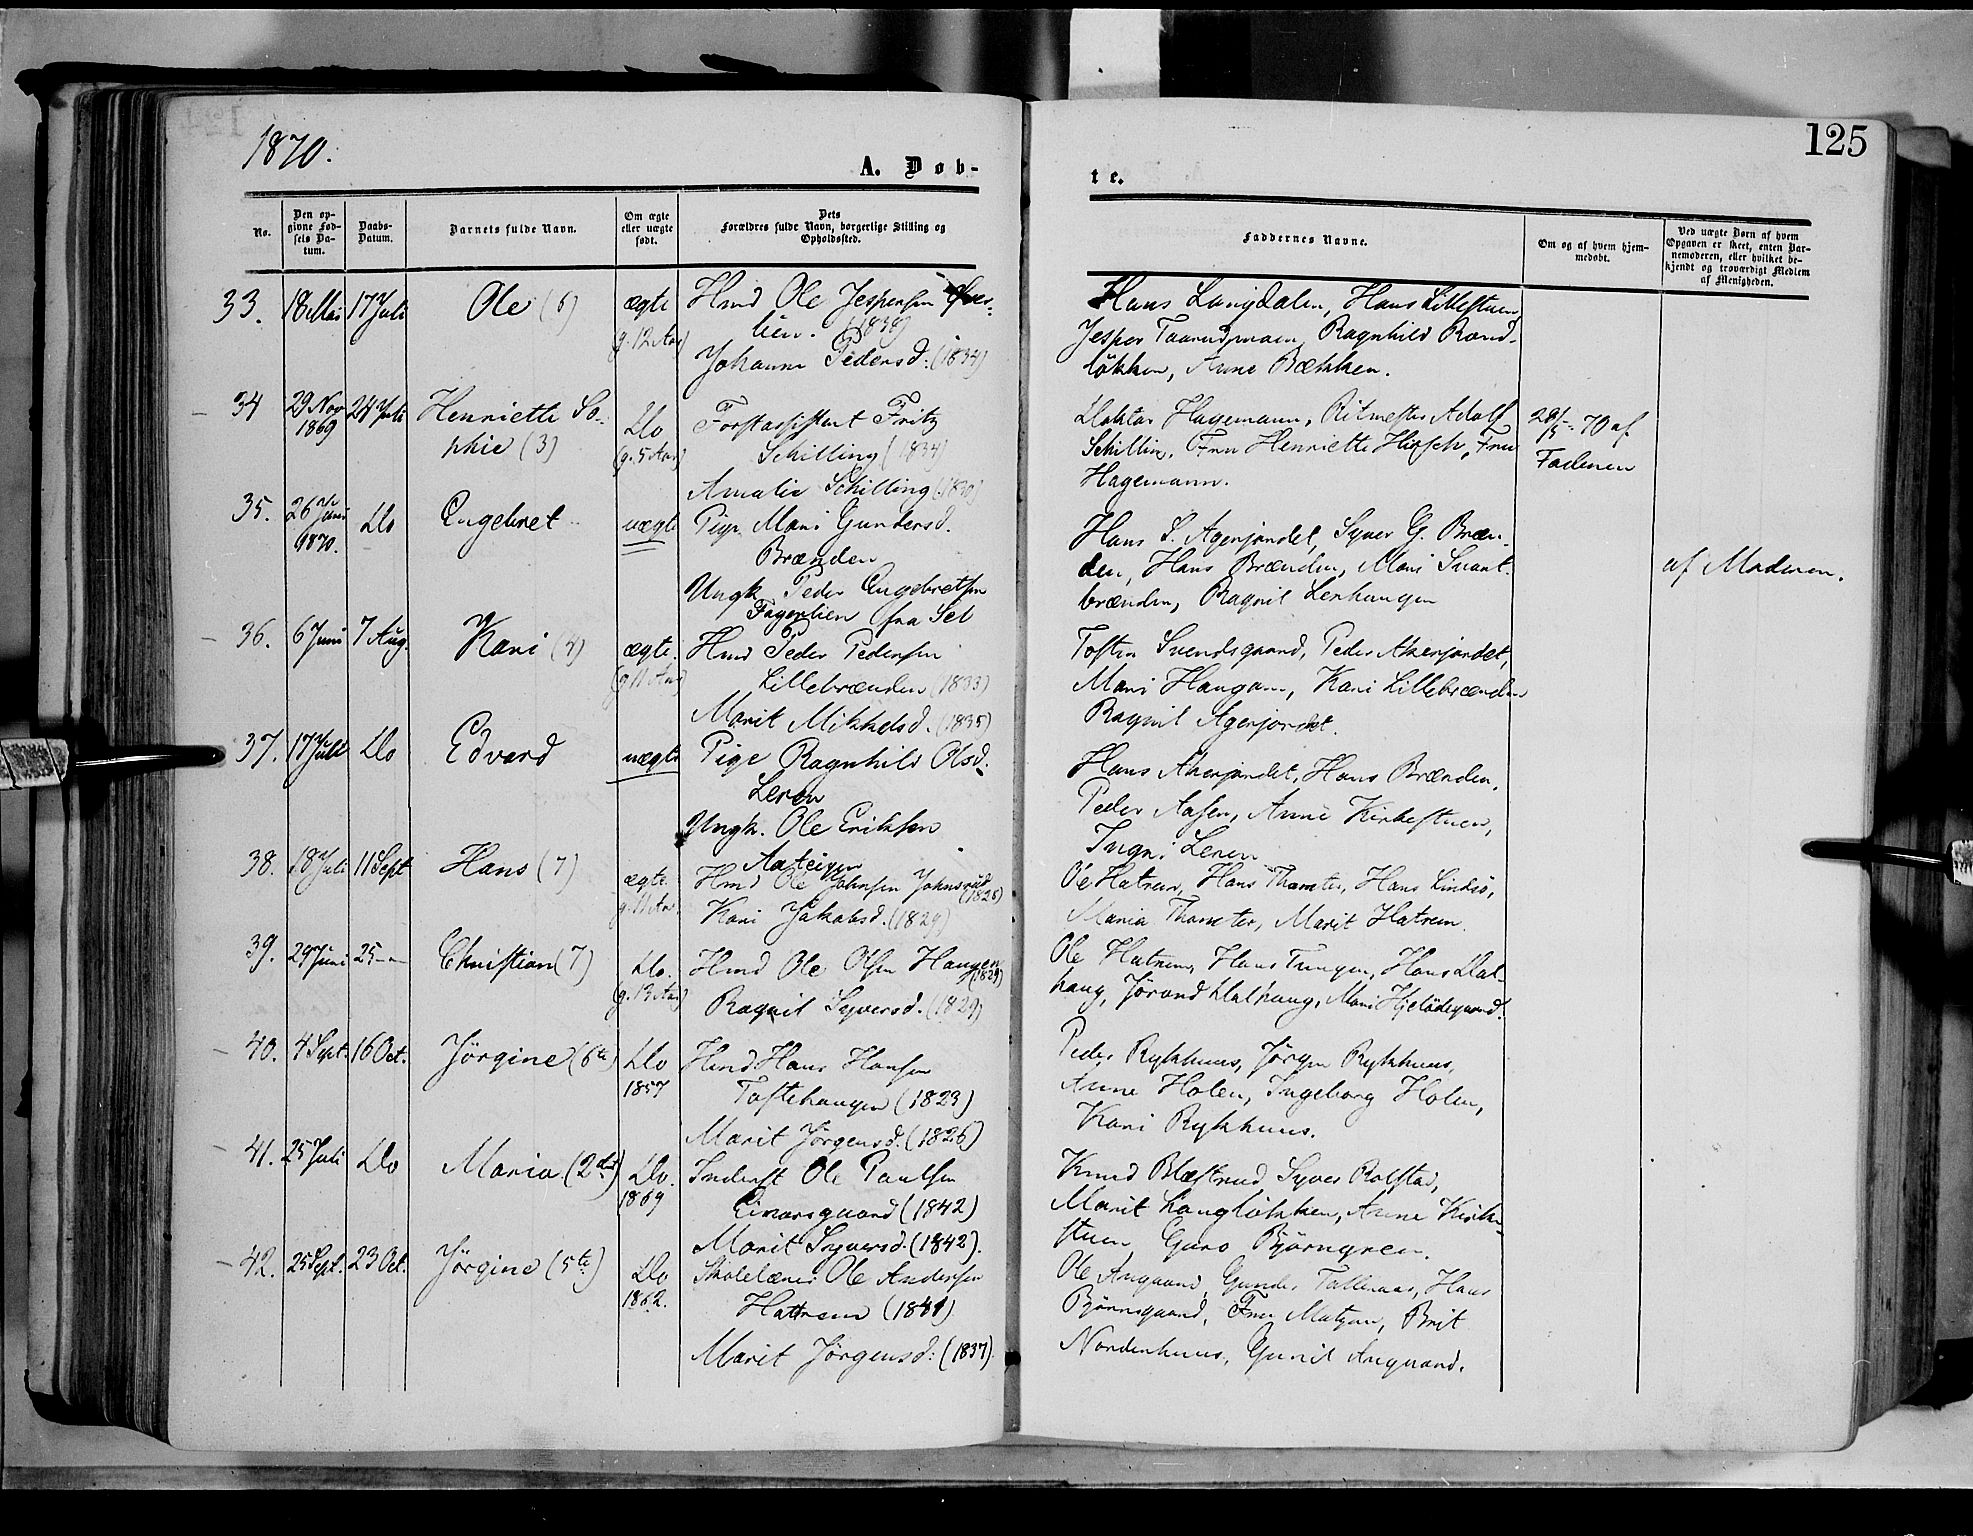 1870.
A. Døb-
te.
125
No.
Den op-
givne Fød-
sels Da-
tum.
Daabs-
Datum.
Barnets fulde Navn.
Om ægte
eller uægte
født.
Dets
Forældres fulde Navn, borgerlige Stilling og
Opholdssted.
Faddernes Navne.
Om og af hvem hjem-
medøbt.
Ved uægte Børn af hvem
Opgaven er skeet, enten Bar-
nemoderen, eller hvilket be-
kjendt og troværdigt Medlem
af Menigheden.
33. 18 Mai 17 Juli Ole (6) ægte Hmd Ole Jespersen
(g. 12 Aar) lien. (1838)
Johanne Pedersd. (1834)
Hans Langdalen, Hans Lillestuen,
Jesper Taarudmoen, Ragnhild Rand-
løkken, Anne Bækken.
34 29 Nov 1869 24 Juli Henriette So-
phie (3) Do (g. 5 Aar)
Forstassistent Fritz
Schilling (1834)
Amalie Schilling
Doktor Hagemann, Ritmester Adolf
Schilling, Fru Henriette Hirsch, Fru
Hagemann.
70 af
Faderen
35. 26 Juni 1870. Do Engebret uægte Pige Mari Gundersd.
Brænden
Ungk. Peder Engebretsen
Fagerlien fra Sel
Hans S. Agerjordet, Syver G. Bræn-
den, Hans Brænden, Mari Svart-
brænden, Ragnil Lerhaugen
af Moderen.
36. 6 Juni 7 Aug. Kari (4) ægte. Hmd Peder Pedersen
(g. 11 Aar) Lillebrænden (1833)
Marit Mikkelsd. (1835)
Tosten Svendsgaard, Peder Akerjordet,
Mari Haugan, Kari Lillebrænden
Ragnil Agerjordet.
37. 17 Juli Do Edvard uægte Pige Ragnhild Olsd.
Leren
Ungk. Ole Eriksen
Aateigen
Hans Akerjordet, Hans Brænden,
Peder Aasen, Anne Kirkestuen,
Ingri Leren
38. 18 Juli 11 Sept Hans (7) ægte. Hmd Ole Johnsen Johnsrud
g. 11 Aar. (1826)
Kari Jakobsd. (1829)
Ole Hatrem, Hans Thomter, Hans Lindsø,
Maria Thomter, Marit Hatrem.
39. 29 Juni 25 — Christian (7) Do. Hmd Ole Olsen Haugen
(g. 13 Aar) (1829)
Ragnil Syversd. (1829)
Ole Hatrem, Hans Tungen, Hans Dal-
haug, Jørand Dalhaug, Mari Hjeltedsgaard.
40. 4 Sept. 16 Oct. Jørgine (6te) Do Hmd Hans Hansen
1857 Toftehaugen (1823)
Marit Jørgensd. (1826)
Peder Rykhuus, Jørgen Rykhuus,
Anne Holen, Ingeborg Holen,
Kari Rykhuus.
41. 25 Juli Do Maria (2det) Do. Inderst Ole Paulsen
1869 Einarsgaard (1842)
Marit Syversd. (1842).
Knud Blæstrud Syver Rolstad,
Marit Langløkken, Anne Kirke-
stuen Guro Bjørngren.
42. 25 Sept. 23 Oct. Jørgine (5te) Do Skolelærer Ole Andersen
1862. Hatrem (1841)
Marit Jørgensd: (1837)
Ole Angaard, Gunder Talleraas, Hans
Bjørnsgaard, Fru Matzau, Brit
Nordenhuus, Gunil Angaard.